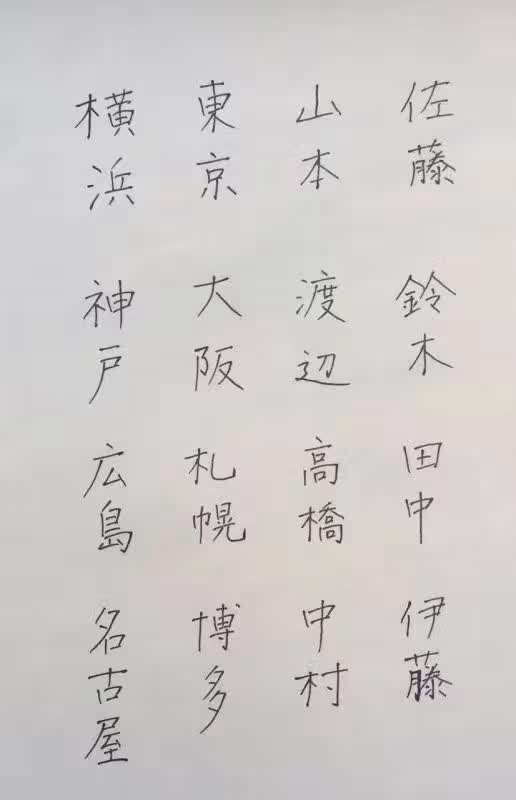 佐藤 鈴木 田中 伊藤
山本 渡辺 高橋 中村
東京 大阪 札幌 博多
横浜 神戸 広島 名古屋